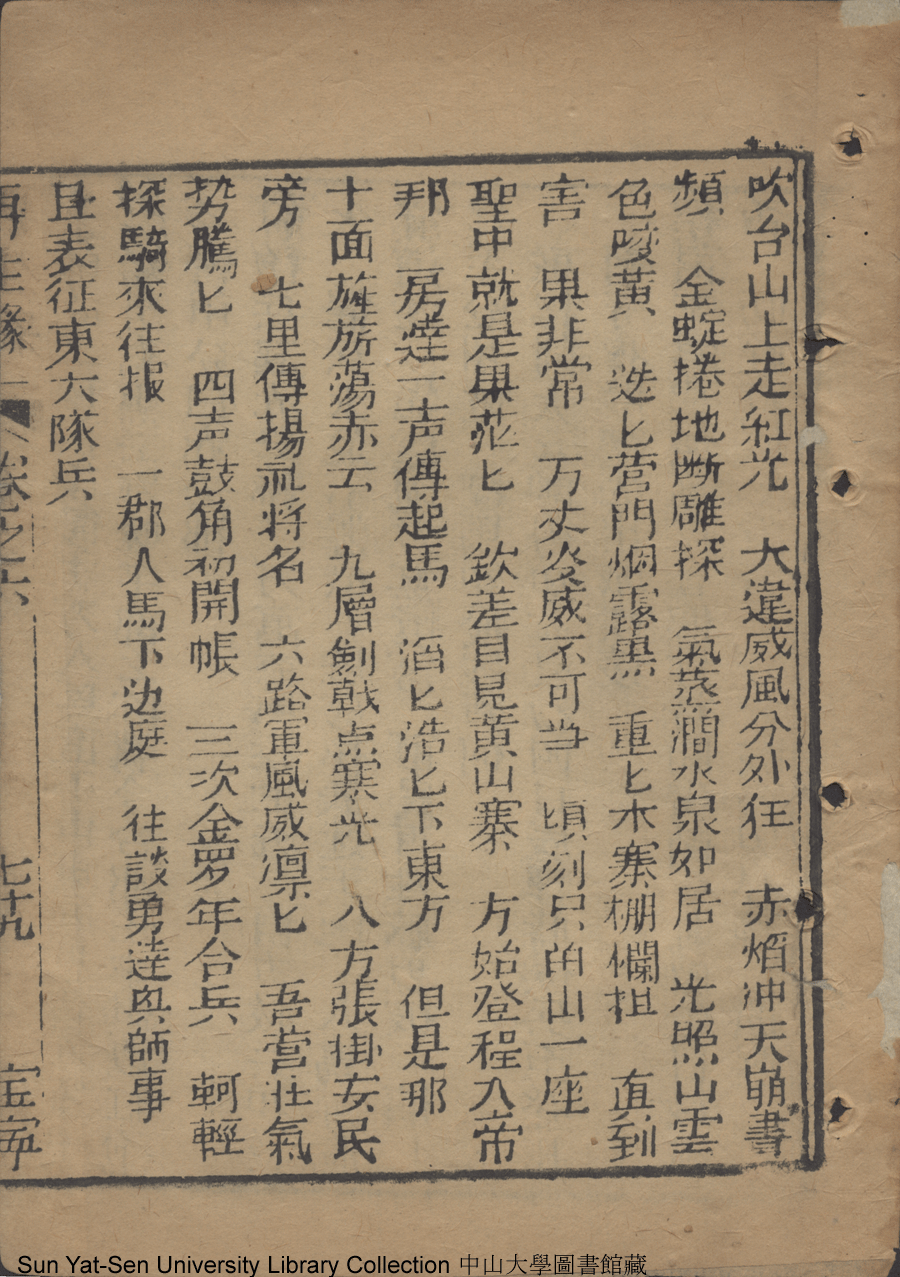 吹台山上走紅光　大違威風分外狂　赤焰冲天崩書
頻　金蜓捲地断雕探　氣蒸澗水泉如居　光照山雲
色唆黄　迭匕营門烟露黒　重匕木寨栅欄担　直到
害　果非常　万丈炎威不可当　頃刻只由山一座
聖中就是果茫匕　欽差目見黄山寨　方始登程入帝
邦　房達一声傳起馬　滔匕浩匕下東方　但是那
十面旌旂蕩赤云　九層劍戟点寒光　八方張掛安民
旁　七里傳揚礼将名　六路軍風威凛匕　吾营壮氣
势騰匕　四声鼓角初開帳　三次金罗年合兵　軻輕
探騎來往报　一郡人馬下边庭　往談勇達與師事
且表征東大隊兵
再生緣　卷之六　七十九
Sun Yat-Sen University Library Collection 中山大學圖書館藏